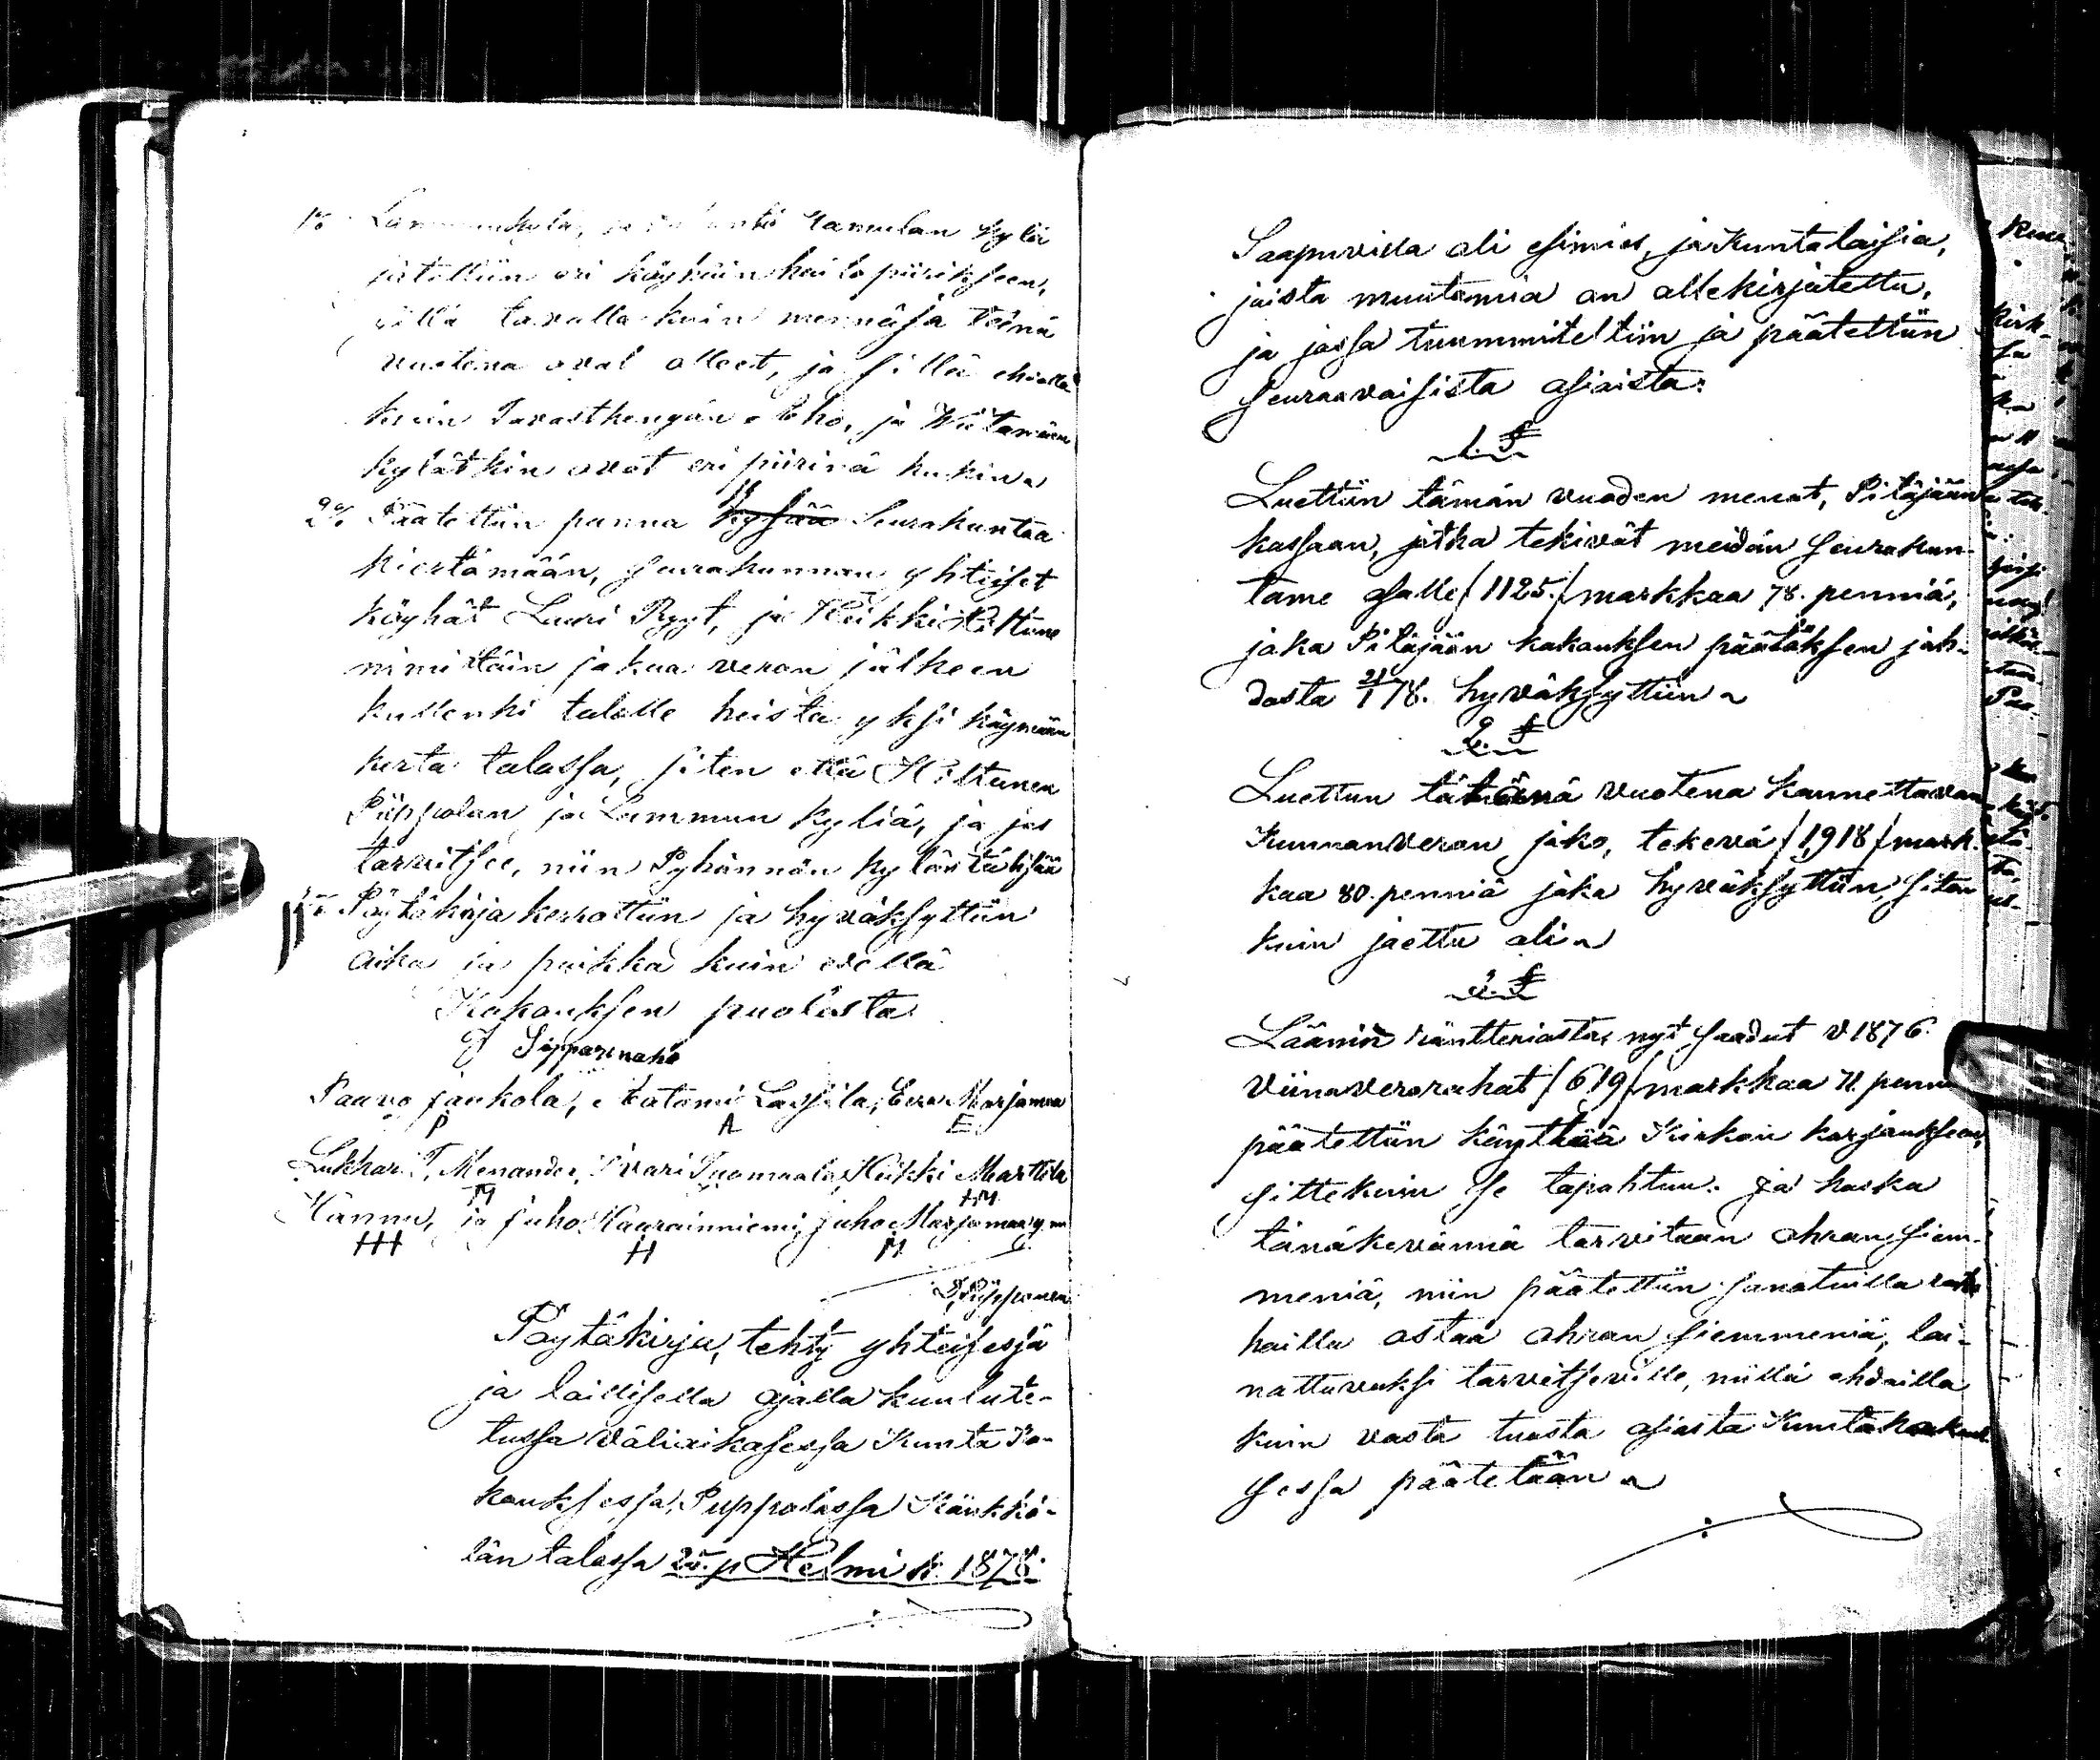 1o Lammunkylä, Hamulan kylä
jätettiin eri köyhäinhoito piirikseen,
sillä tavalla kuin mennäsä tänä
vuotena ovat olleet, ja sillä
kuin Tavastkengän Aho, ja Viitamäen
kylätkin ovat eri piirinä kukin
2o Päätettiin panna koko Seurakuntaa
kiertämään, Seurakunnan yhteiset
köyhät Lauri Ryyt, ja Heikki Hiltune
nimittäin jakaa veron jälkeen
kullenki talolle heistä yksi käymään
kerta talossa, siten että Hiltunen
Piippolan ja Lammun kyliä, ja jos
tarvitsee, niin Pyhännän kylän lisää
Pöytäkirja kerrottiin ja hyväksyttiin
aika ja paikka kuin edellä
Kokouksen puolesta
J Sipparinaho
Paavo jaukola, Aatami Lassila, Eero Marjamaa
P A E
Lukkari T. Menander, Iivari Tuomaala, Heikki Marttila
M HM
Hannu, ja juho Kaarainniemi, juho Marjamaa y.m
HH H M
Piippola
Pöytäkirja, tehty yhteisessä
ja laillisella ajalla kuulute-
tussa väliaikasessa Kunta Ko-
kouksessa, Piippolassa Känkkö-
län talossa 25. p Helmi k. 1878.
Saapuvilla oli esimies, ja Kuntalaisia,
joista muutamia on allekirjotettu,
ja jossa tuummiteltiin ja päätettiin
seuraavaisista asioista:
1. §
Luettiin tämän vuoden menot, Pitäjään
kassaan, jotka tekivät meidän seurakun-
tame osalle /1125./ markkaa 78. penniä,
joka Pitäjään kokouksen päätöksen joh-
dosta 21/1 78. hyväksyttiin
2. §
Luettiin tänä vuotena kannettavan
Kunnanveron jako, tekevä /1,918/ mark-
kaa 80. penniä joka hyväksyttiin, siten
kuin jaettu oli
3. §
Läänin räntteriasta, nyt saadut v 1876.
viinaverorahat /619/ markkaa 71. penni
päätettiin käyttää Kirkon korjaukseen,
sittekuin se tapahtuu. ja koska
tänäkevännä tarvitaan ohran siem-
meniä, niin päätettiin sanotuilla raho
hailla ostaa ohran siemmeniä, lai-
nattavaksi tarvitseville, niillä ehdoilla
kuin vasta tuosta asiasta Kuntakokouk-
sessa päätetään